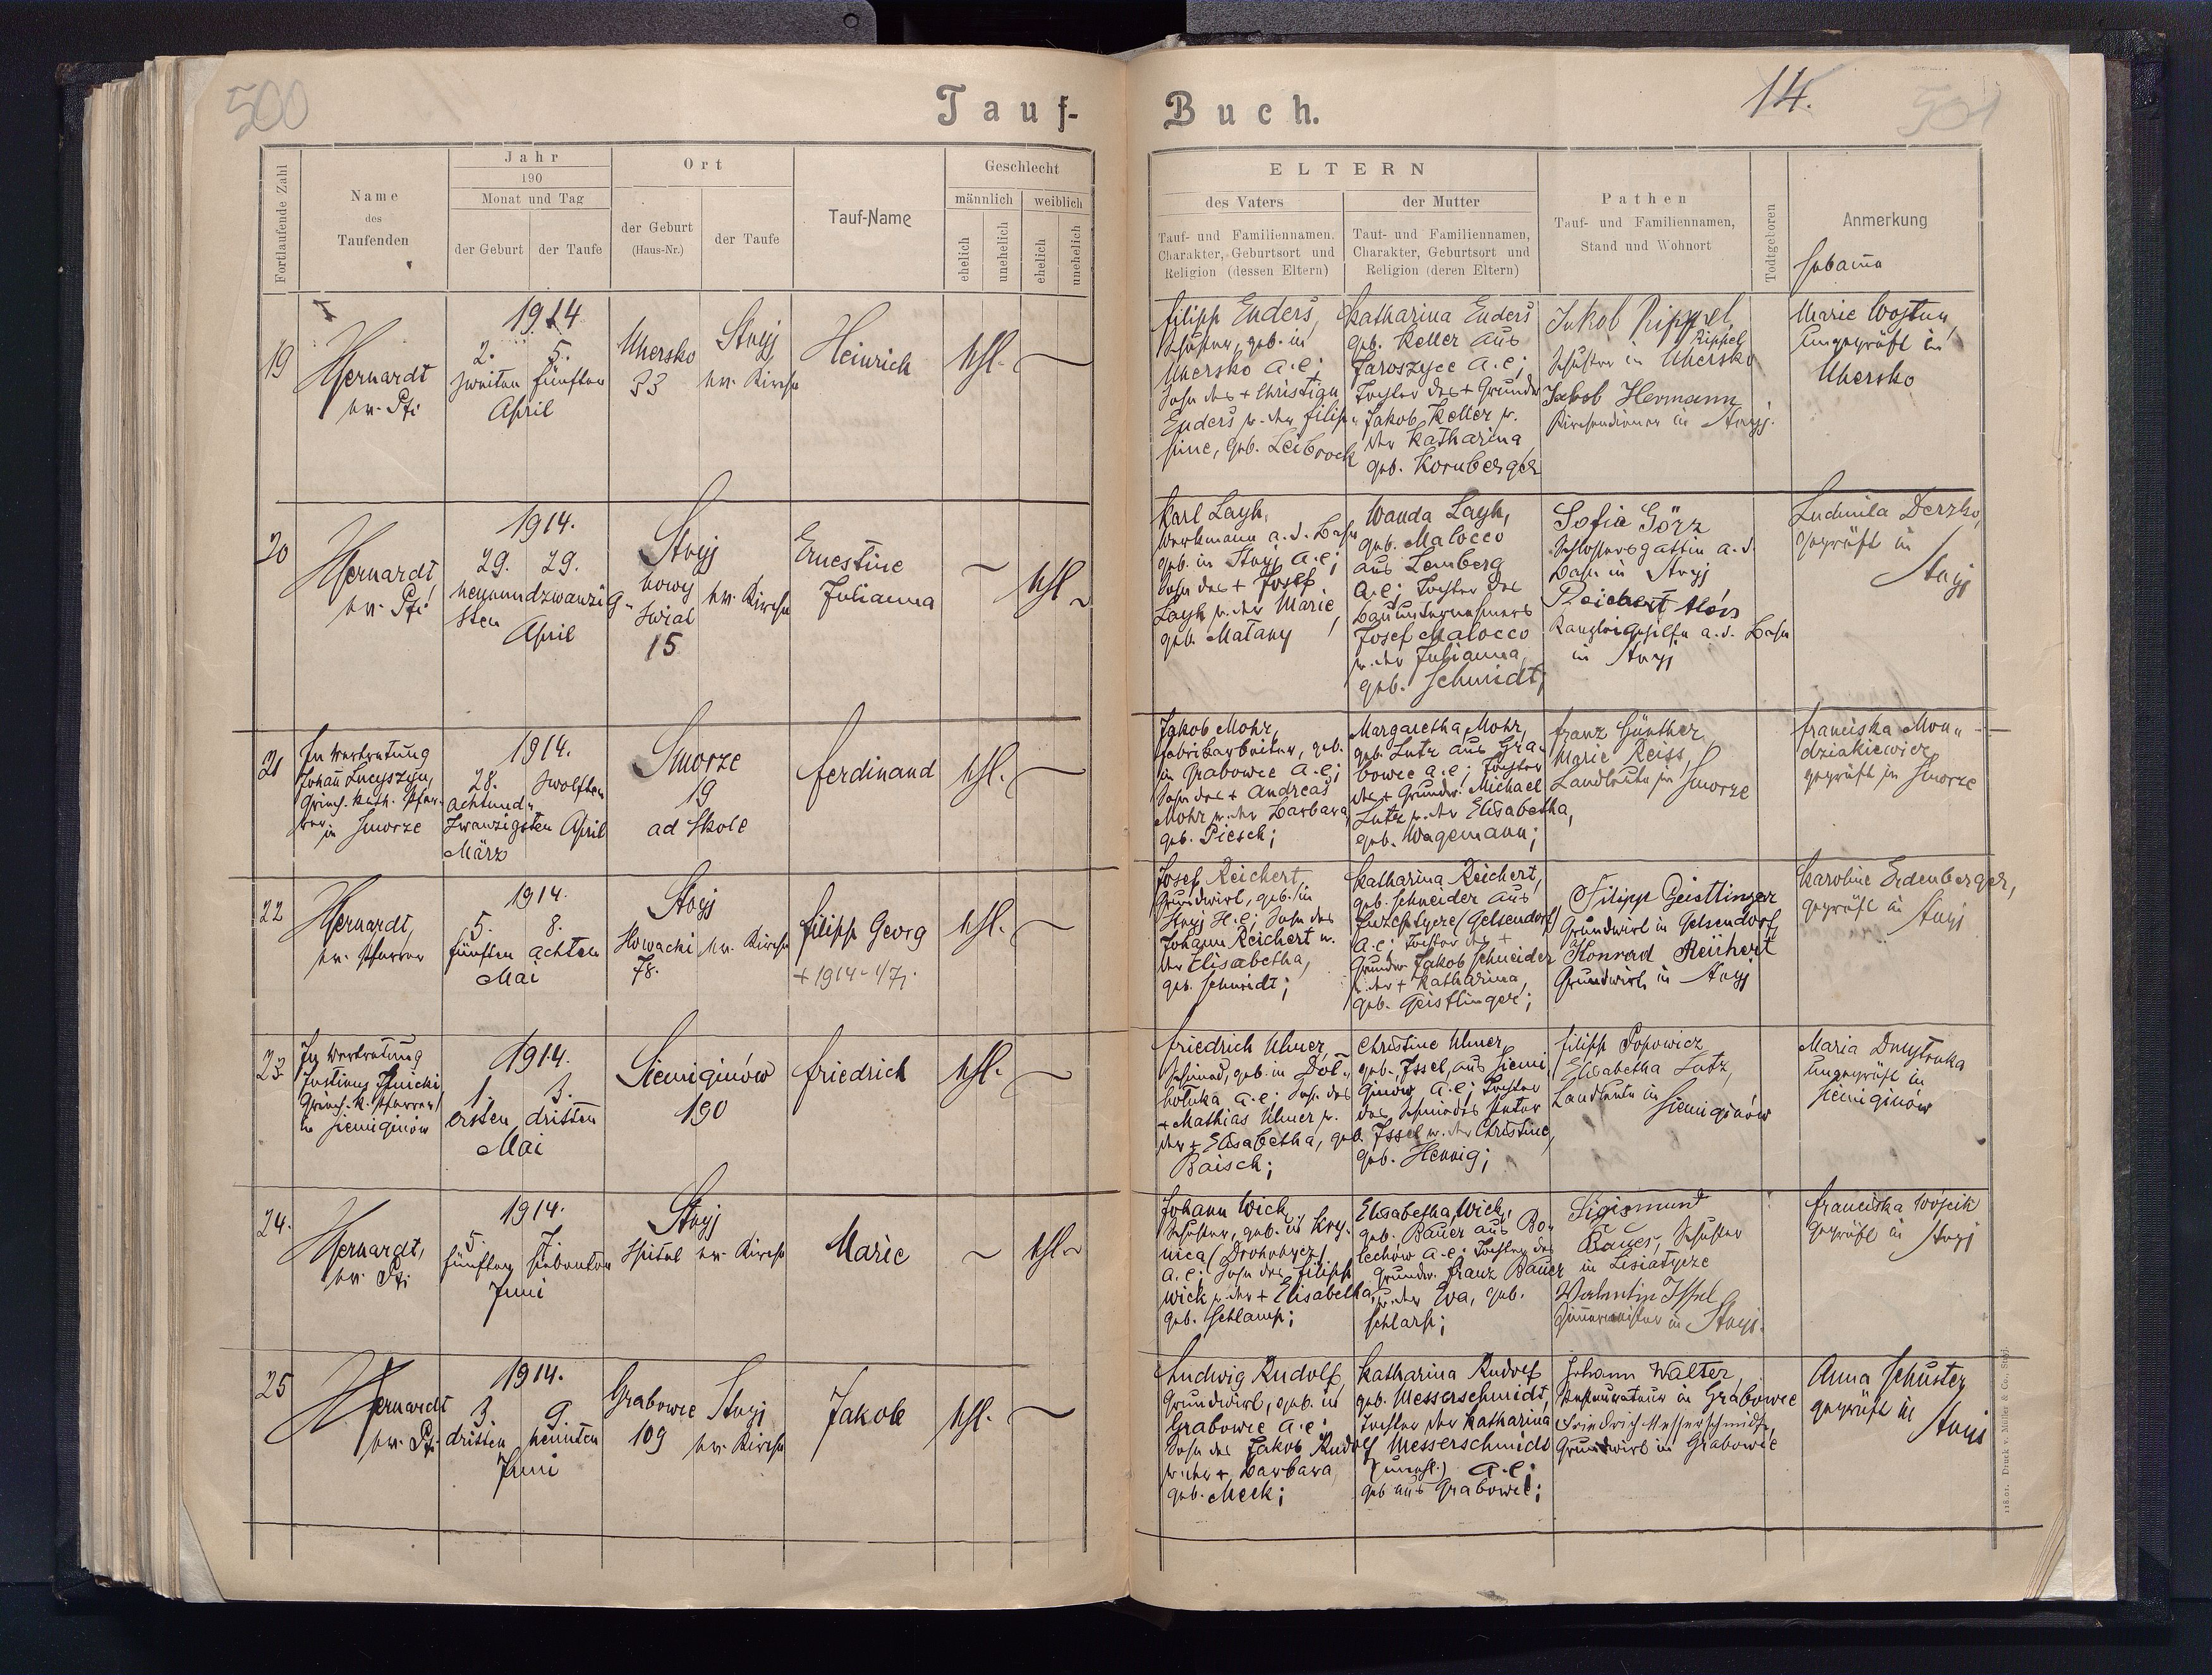 500
Tauf-
Buch.
14.
501
Fortlaufende Zahl
Name
des
Taufenden
Jahr
190
Monat und Tag
der Geburt
der Taufe
Ort
der Geburt
(Haus-Nr.)
der Taufe
Tauf-Name
Geschlecht
männlich
weiblich
ehelich
unehelich
ehelich
unehelich
ELTERN
des Vaters
der Mutter
Tauf- und Familiennamen,
Charakter, Geburtsort und
Religion (dessen Eltern)
Tauf- und Familiennamen,
Charakter, Geburtsort und
Religion (deren Eltern)
Pathen
Tauf- und Familiennamen,
Stand und Wohnort
Todtgeboren
Anmerkung
Hebamme
19
ev. Pfr
1914
2. 5.
zweiten fünften
April
Uhersko
33
Stryj
ev. Kirche
Heinrich
ehl.
Filipp Enders,
Schuster, geb. in
Uhersko a.c;
Sohn des + Christian
Enders u. der Filip-
pine, geb. Leibrock
Katharina Enders
geb. Keller aus
Jaroszyce a.c;
Tochter des + Grundw.
Jakob Keller u.
der Katharina
geb. Kornberger
Jakob Rippel,
Schuster in Uhersko
Jakob Hermann
Kirchendiener in Stryj.
Marie
ungeprüft in
Uhersko
20
ev. Pfr
1914.
29. 29.
neunundzwanzig-
sten
April
Stryj
nowy
swiat
15
ev. Kirche
Ernestine
Julianna
ehl.
Karl Layh,
Werkmann a. d. Bahn
geb. in Stryj a.c;
Sohn des + Josef
Layh u. der Marie,
geb. Matany
Wanda Layh,
geb. Malocco
aus Lemberg
a.c; Tochter des
Bauunternehmers
Josef Malocco
u. der Julianna,
geb. Schmidt;
Sofia Görz
Schlossersgattin a. d.
Bahn in Stryj
Reichert Alois
Kanzleigehilfe a. d. Bahn
in Stryj
Ludmila Derzko,
geprüft in
Stryj
21
In Vertretung
Johann
Griech. kath. Pfar-
rer in Smorze
1914.
28. zwölften
achtund-
zwanzigsten April
März
Smorze
19
ad Skole
Ferdinand
ehl.
Jakob Mohr,
Fabrikarbeiter, geb.
in Grabowce a.c;
Sohn des + Andreas
Mohr u. der Barbara,
geb. Piesch;
Margaretha Mohr,
geb. Lutz aus Gra-
bowce a.c; Tochter
des + Grundw. Michael
Lutz u. der Elisabetha,
geb. Wagemann;
Franz Günther,
Marie Reiss,
Landleute in Smorze
Franciska Mon-
dziakiewicz,
geprüft in Smorze
22
ev. Pfarrer
1914.
5. 8.
fünften achten
Mai
Stryj
Slowacki
78.
ev. Kirche
Filipp Georg
+ 1914 - 1/7.
ehl.
Josef Reichert,
Grundwirt, geb. in
Stryj H.c; Sohn des
Johann Reichert u.
der Elisabetha,
geb. Schmidt;
Katharina Reichert,
geb. Schneider aus
(Gelsendorf)
a.c; Tochter des +
Grundw. Jakob Schneider
u. der + Katharina,
geb. Geistlinger;
Filipp Geistlinger
Grundwirt in Gelsendorf,
Konrad Reichert
Grundwirt in Stryj
Karoline Erdenberger,
geprüft in
Stryj
23
In Vertretung
Griech. k. Pfarrer
in Siemiginow
1914.
1. 3.
ersten dritten
Mai
Siemiginów
190
Friedrich
ehl.
Friedrich Ulmer,
Schmied, geb. in Dol-
holuka a.c; Sohn des
+ Mathias Ulmer u.
der + Elisabetha, geb.
Baisch;
Christine Ulmer,
geb. Issel, aus Siemi-
ginów a.c; Tochter
des Schmiedes Peter
Issel u. der Christine,
geb. Hennig;
Filipp Popowicz
Elisabetha Lutz,
Landleute in
Siemiginów
Maria Dmytruka
ungeprüft in
Siemiginów
24.
ev. Pfr
1914.
5. 7.
fünften siebenten
Juni
Stryj
Spital
ev. Kirche
Marie
ehl.
Johann Wick,
Schuster, geb. in Kry-
nica (Drohobycz)
a.c; Sohn des Filipp
Wick u. der + Elisabetha,
geb. Schlamp;
Elisabetha Wick,
geb. Bauer aus Bo-
lechów a.c; Tochter des
Grundw. Franz Bauer
u. der Eva, geb.
Schlarp;
Sigismund
Bauer, Schuster
in Lisiatycze
Valentin Issel
Zimmermeister in Stryj.
Franciska Wójcik
geprüft in Stryj
25
ev. Pfr
1914.
3 9
dritten neunten
Juni
Grabowce
109
Stryj
ev. Kirche
Jakob
ehl.
Ludwig Rudolf,
Grundwirt, geb. in
Grabowce a.c;
Sohn des Jakob Rudolf
u. der + Barbara
geb. Meck;
Katharina Rudolf
geb. Messerschmidt,
Tochter der Katharina
Messerschmidt
(unehl.) a.c;
geb. aus Grabowce;
Johann Walter,
Restaurateur in Grabowce
Friedrich Messerschmidt,
Grundwirt in Grabowce
Anna Schuster
geprüft in
Stryj
118.01. Druck v. Müller & Co., Stryj.